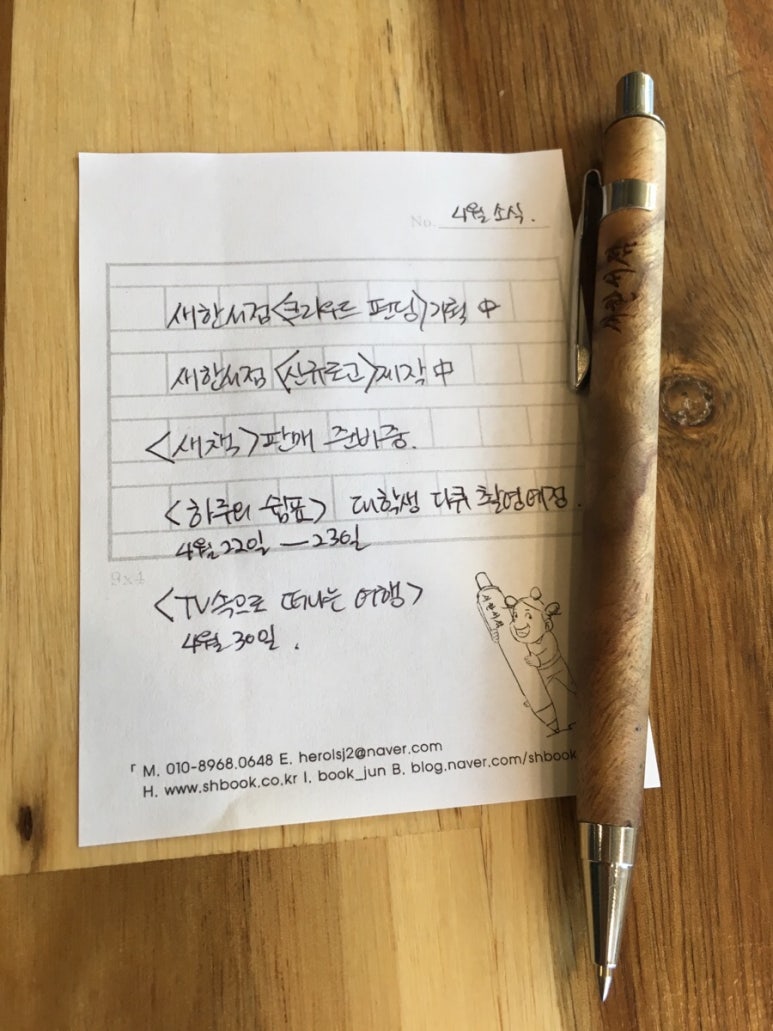 No. 4월 소식.
새한서점 <크라우드 펀딩> 기획 中
새한서점 <신규로고> 제작 中
<새책> 판매 준비중.
<하루의 쉼표> 대학생 다큐 촬영예정.
4월 22일 — 23일
9x4
<TV속으로 떠나는 여행>
4월 30일.
「 M. 010-8968.0648 E. herolsj2@naver.com
H. www.shbook.co.kr I. book_jun B. blog.naver.com/shbook
새한서점